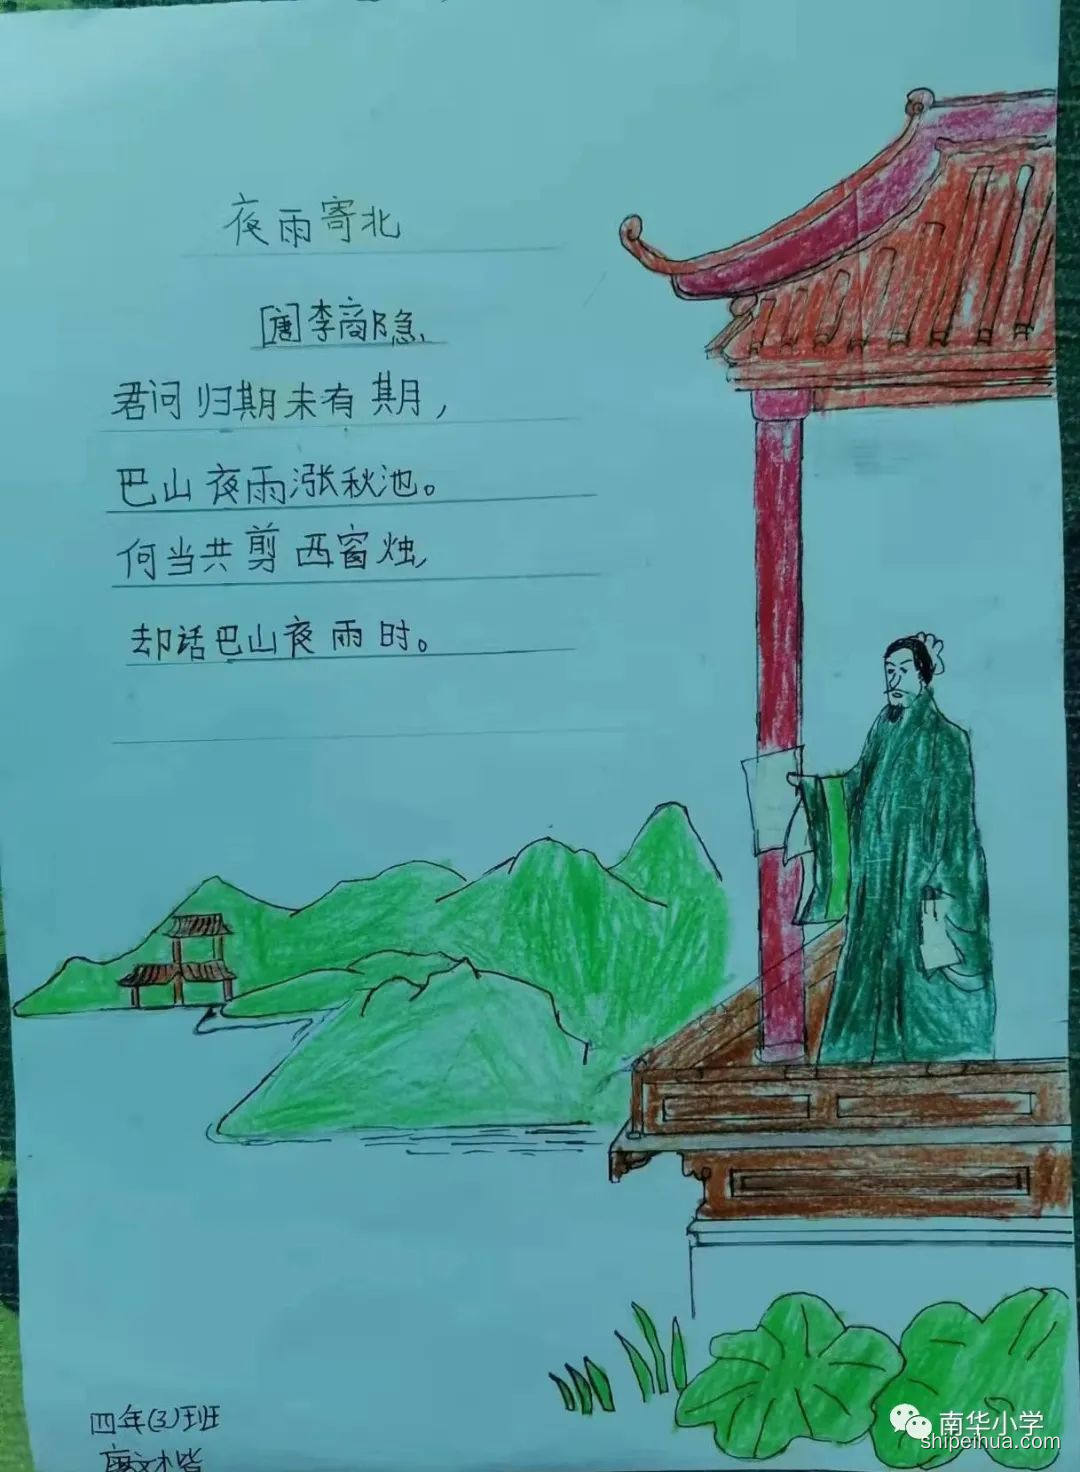 夜雨寄北
[唐]李商隐
君问归期未有期，
巴山夜雨涨秋池。
何当共剪西窗烛，
却话巴山夜雨时。
四年(3)班
南华小学
shipeihua.com